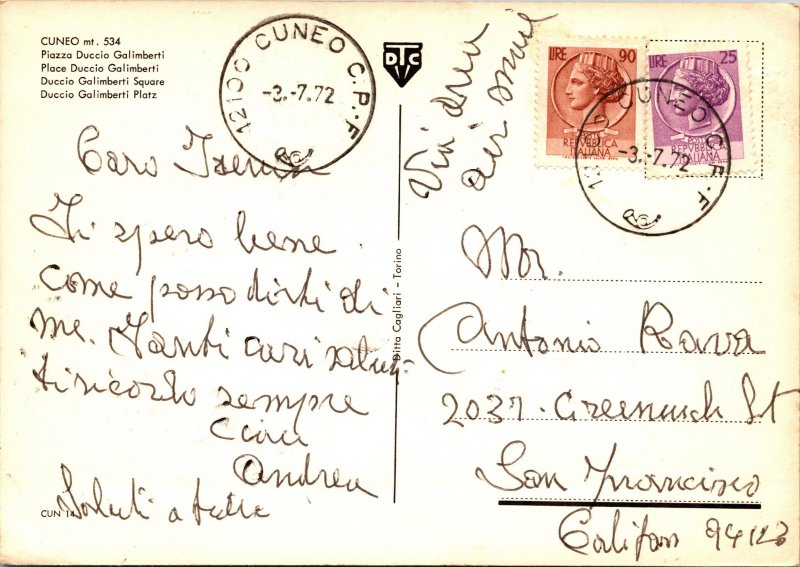 CUNEO mt. 534
Piazza Duccio Galimberti
Place Duccio Galimberti
Duccio Galimberti Square
Duccio Galimberti Platz
12100 CUNEO C.P.-F
-3.-7.72
DTC
Via aerea
air mail
LIRE 90
REPUBBLICA
ITALIANA
LIRE 25
REPUBBLICA
ITALIANA
CUNEO C.P.-F
-3.-7.72
Caro
Ti spero bene
come posso dirti di
me. Tanti cari saluti
ti ricordo sempre
Ciau
Andrea
Saluti a tutti
CUN 14
Ditta Cagliari - Torino
Mr.
Antonio Rava
2037. Greenwich St
San Francisco
Califor 94123